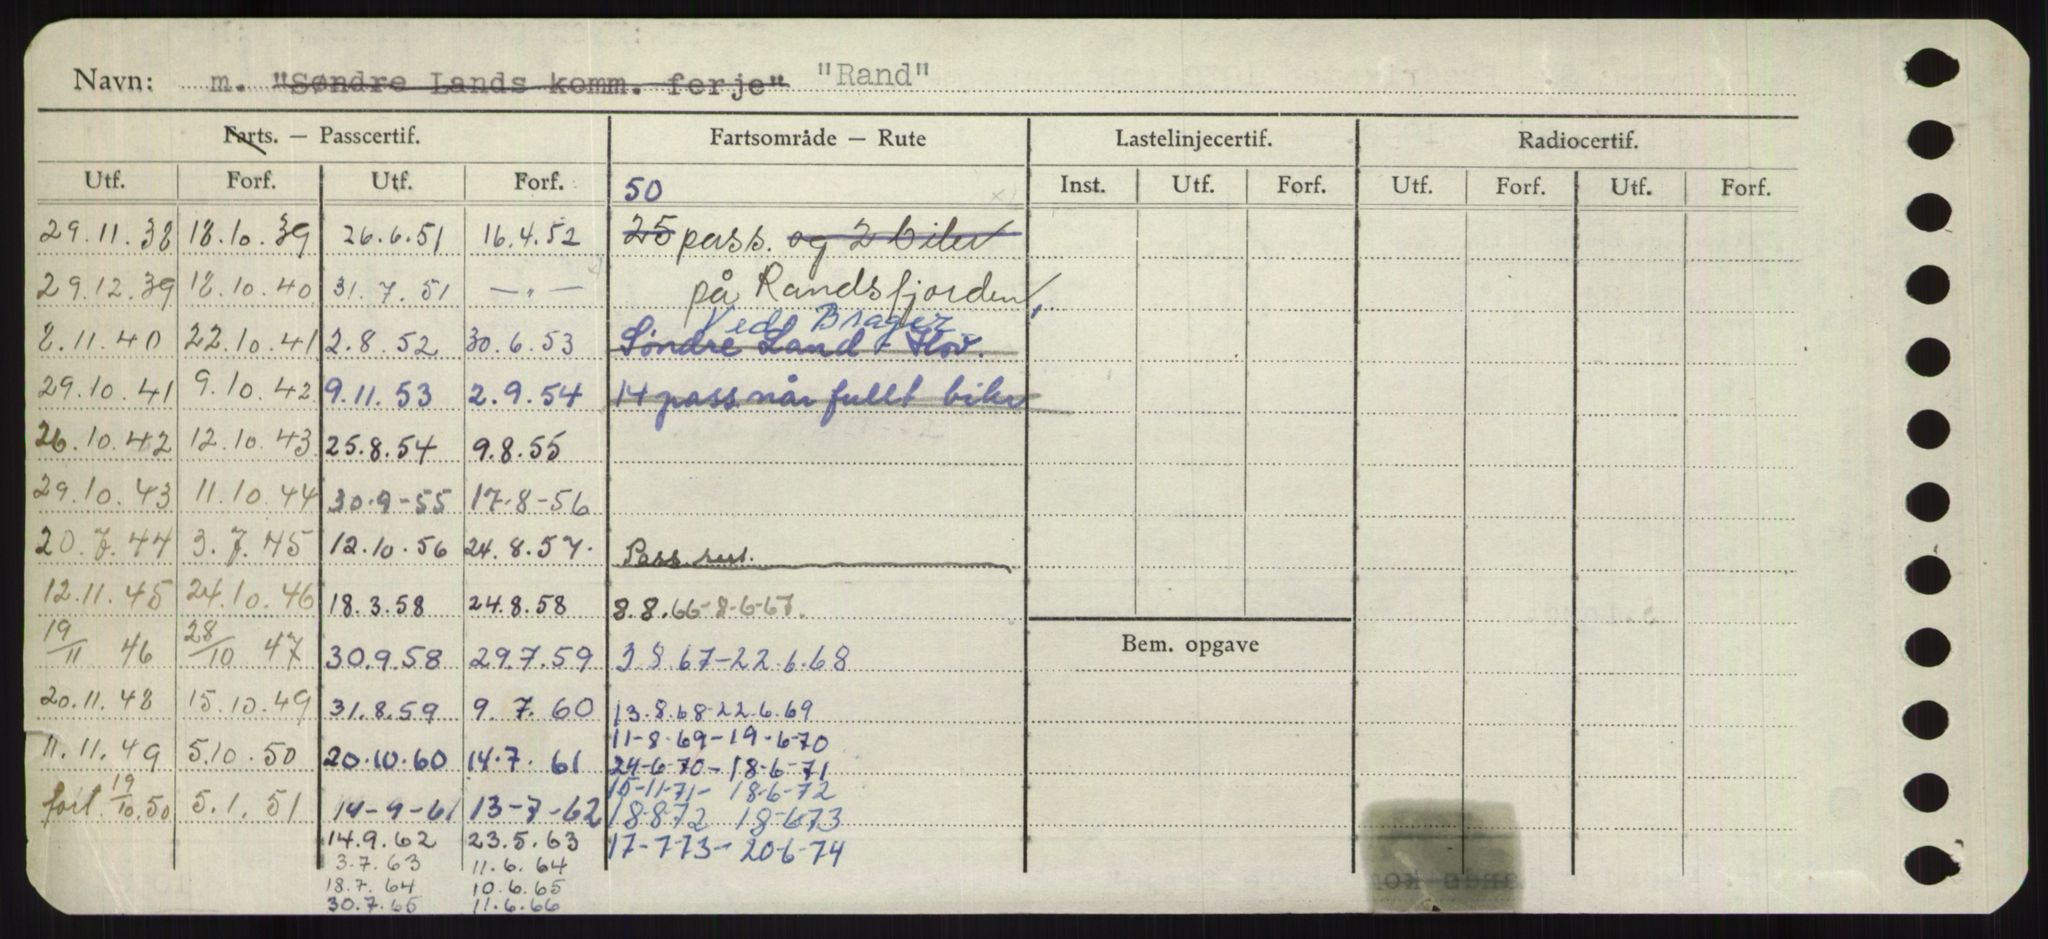 Navn: m. "Søndre Lands komm. ferje" "Rand"
Farts. — Passcertif. Fartsområde — Rute Lastelinjecertif. Radiocertif.
Utf. Forf. Utf. Forf. 50 Inst. Utf. Forf. Utf. Forf. Utf. Forf.
29.11.38 18.10.39 26.6.51 16.4.52 25 pass. og 2 biler
29.12.39 18.10.40 31.7.51 — " — på Randsfjorden
Ved Brager
8.11.40 22.10.41 2.8.52 30.6.53 Søndre Land - Hov.
29.10.41 9.10.42 9.11.53 2.9.54 14 pass når fullt biler
26.10.42 12.10.43 25.8.54 9.8.55
29.10.43 11.10.44 30.9-55 17.8-56
20.7.44 3.7.45 12.10.56 24.8.57. Pass.
12.11.45 24.10.46 18.3.58 24.8.58 8.8.66-8-6-67.
19/11 46 28/10 47 30.9.58 29.7.59 3 8 67-22.6.68
20.11.48 15.10.49 31.8.59 9.7.60 13.8.68-22.6.69
11-8-69-19-6-70
11.11.49 5.10.50 20.10.60 14.7.61 24-6-70-18-6-71
15-11-71- 18-6-72
forl. 19/10.50 5.1.51 14-9-61 13-7-62 18-8-72 18-6-73
14.9.62 23.5.63 17-7-73- 20-6-74
3.7.63 11.6.64
18.7.64 10.6.65
30.7.65 11.6.66
Bem. opgave